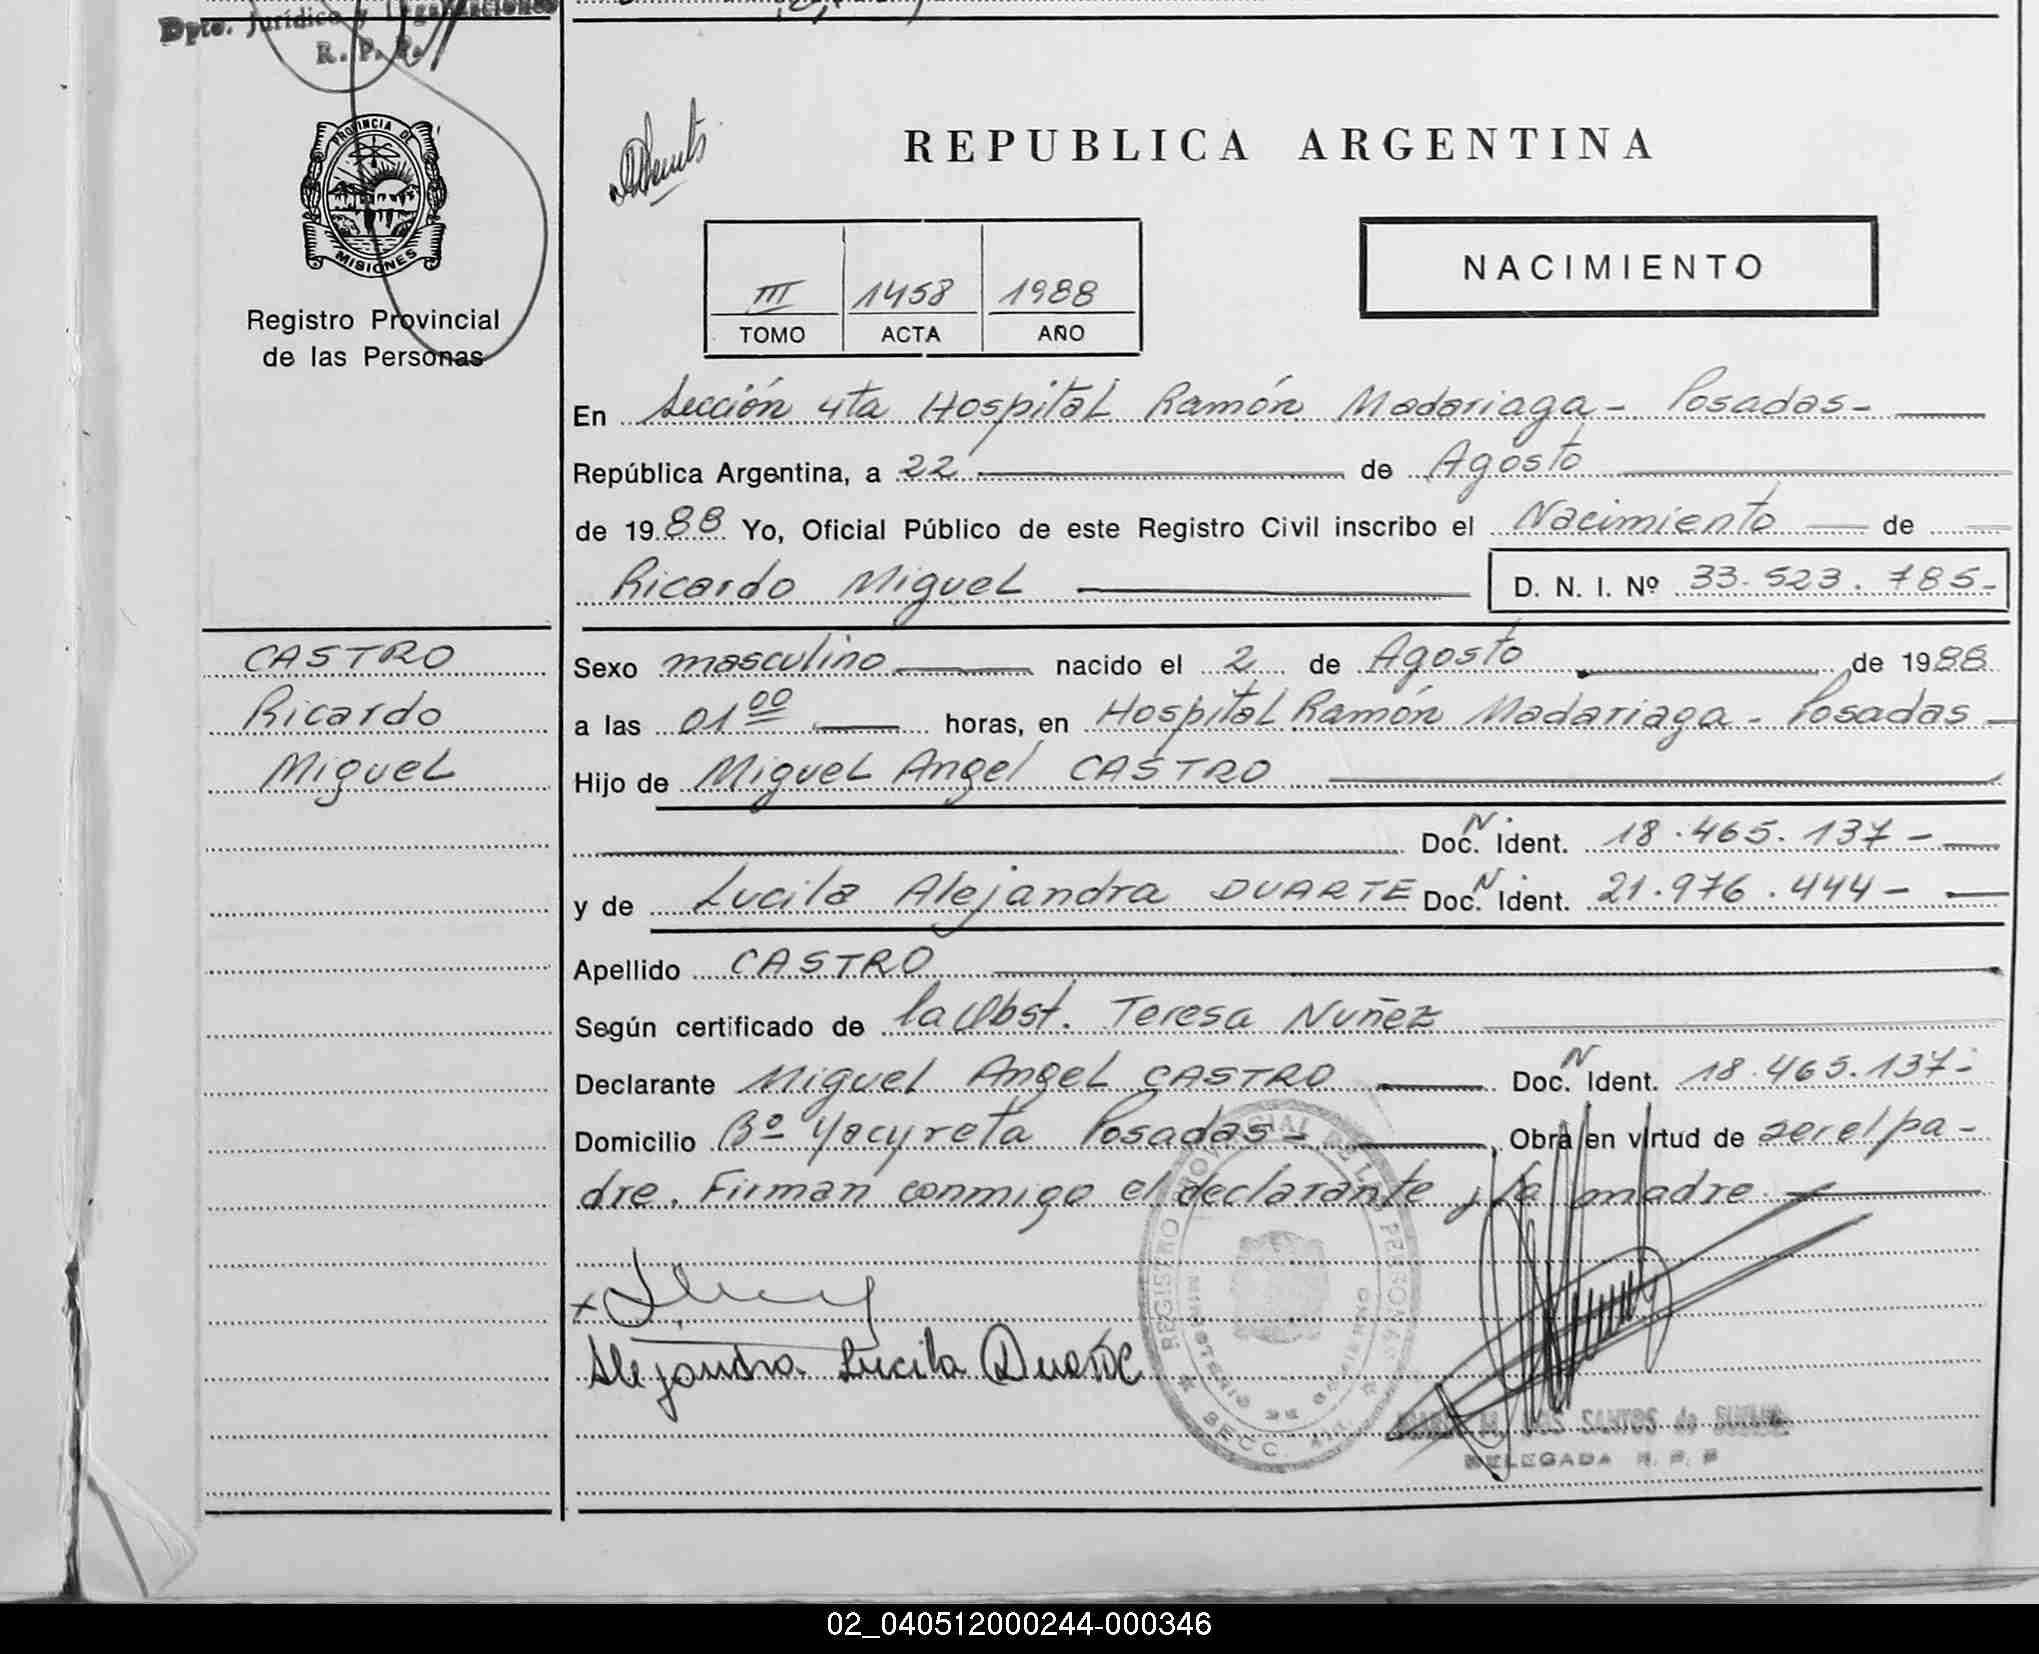 Dpto. Jurídico y
R. P. P.
PROVINCIA DE
MISIONES
Registro Provincial
de las Personas
REPUBLICA ARGENTINA
NACIMIENTO
III 1458 1988
TOMO ACTA AÑO
En Sección 4ta Hospital Ramón Madariaga - Posadas -
República Argentina, a 22 de Agosto
de 1988 Yo, Oficial Público de este Registro Civil inscribo el Nacimiento de
Ricardo Miguel D. N. I. Nº 33.523.785-
CASTRO
Ricardo
Miguel
Sexo masculino nacido el 2 de Agosto de 1988
a las 01 00 horas, en Hospital Ramón Madariaga - Posadas -
Hijo de Miguel Angel CASTRO
Doc. N. Ident. 18.465.137-
y de Lucila Alejandra DUARTE Doc. N. Ident. 21.976.444-
Apellido CASTRO
Según certificado de la Obst. Teresa Nuñez
Declarante Miguel Angel CASTRO Doc. N Ident. 18.465.137-
Domicilio Bº Yacyreta Posadas - Obra en virtud de ser el pa-
dre. Firman conmigo el declarante y la madre
Alejandra Lucila Duarte
REGISTRO PROVINCIAL DE LAS PERSONAS
MINISTERIO DE GOBIERNO
SECC. 4ta.
SANTOS de
DELEGADA R. P. P
02_040512000244-000346